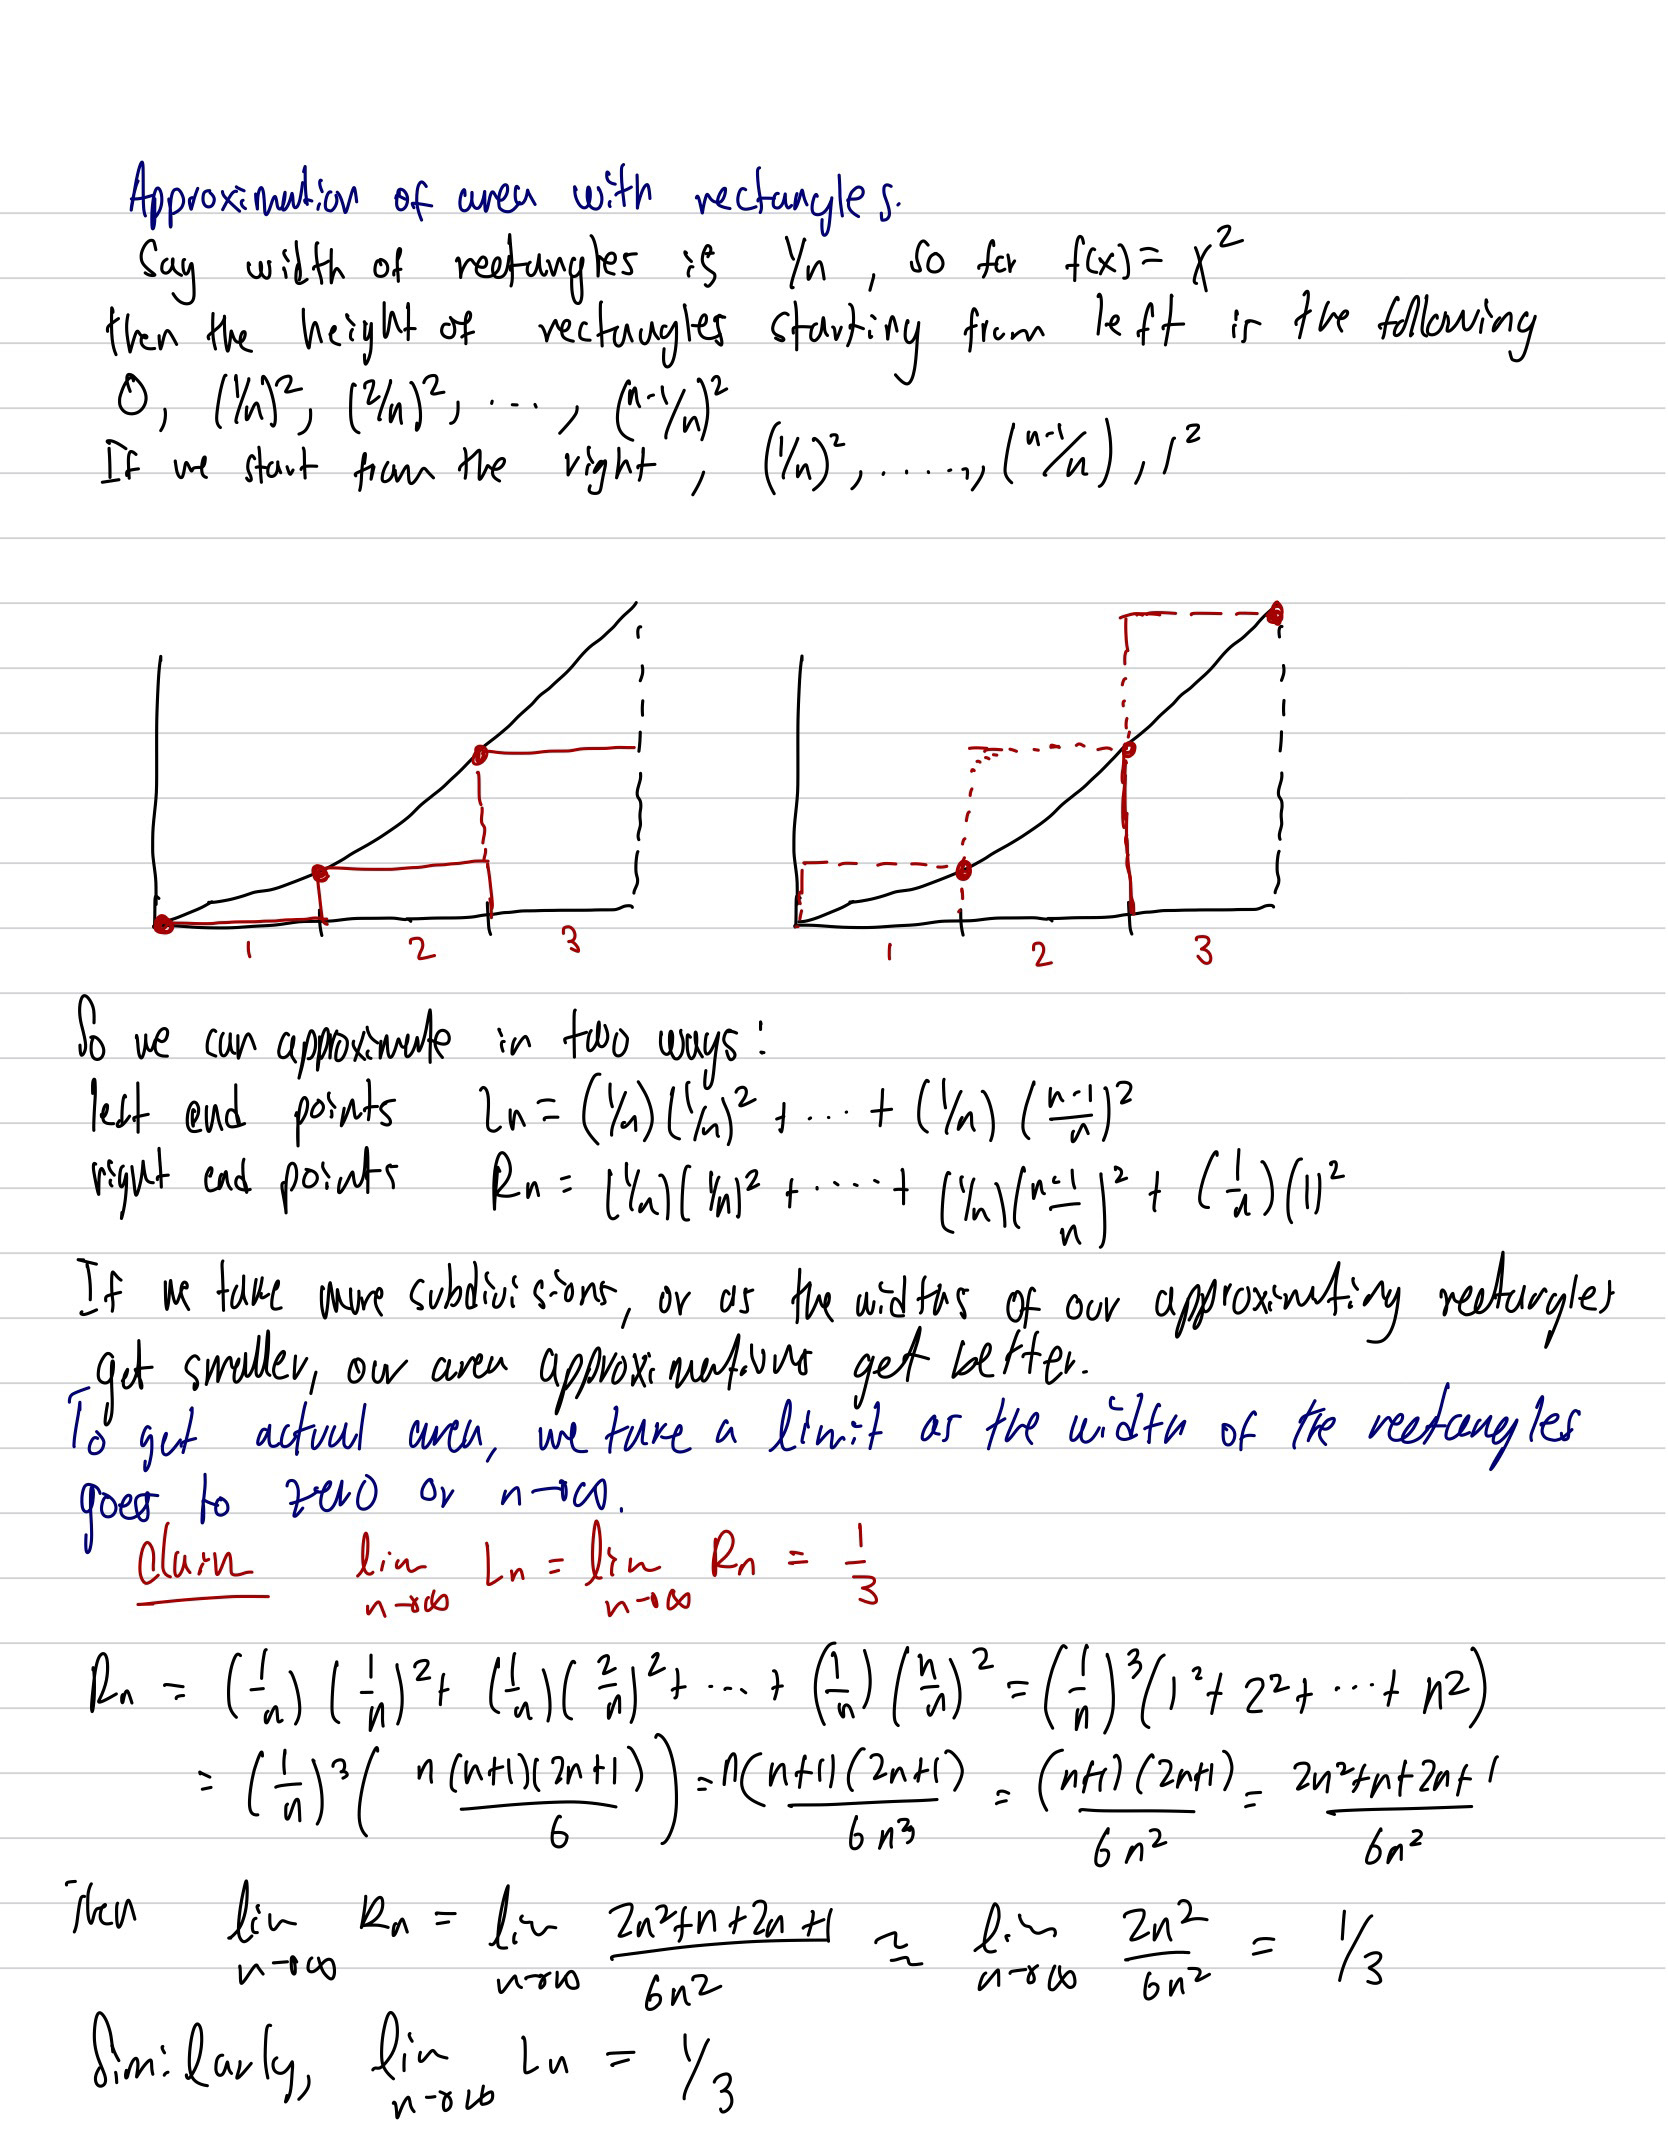 Approximation of area with rectangles.
Say width of rectangles is 1/n, so for f(x) = x²
then the height of rectangles starting from left is the following
0, (1/n)², (2/n)², ..., (n-1/n)²
If we start from the right, (1/n)², ....., (n-1/n), 1²
1 2 3
1 2 3
So we can approximate in two ways:
left end points Ln = (1/n)(1/n)² + ... + (1/n)((n-1)/n)²
right end points Rn = (1/n)(1/n)² + ..... + (1/n)((n-1)/n)² + (1/n)(1)²
If we take more subdivisions, or as the widths of our approximating rectangles
get smaller, our area approximations get better.
To get actual area, we take a limit as the width of the rectangles
goes to zero or n→∞.
Claim lim n→∞ Ln = lim n→∞ Rn = 1/3
Rn = (1/n)(1/n)² + (1/n)(2/n)² + ... + (1/n)(n/n)² = (1/n)³(1² + 2² + ... + n²)
= (1/n)³(n(n+1)(2n+1)/6) = n(n+1)(2n+1)/6n³ = (n+1)(2n+1)/6n² = 2n²+n+2n+1/6n²
Then lim n→∞ Rn = lim n→∞ 2n²+n+2n+1/6n² ≃ lim n→∞ 2n²/6n² = 1/3
Similarly, lim n→∞ Ln = 1/3